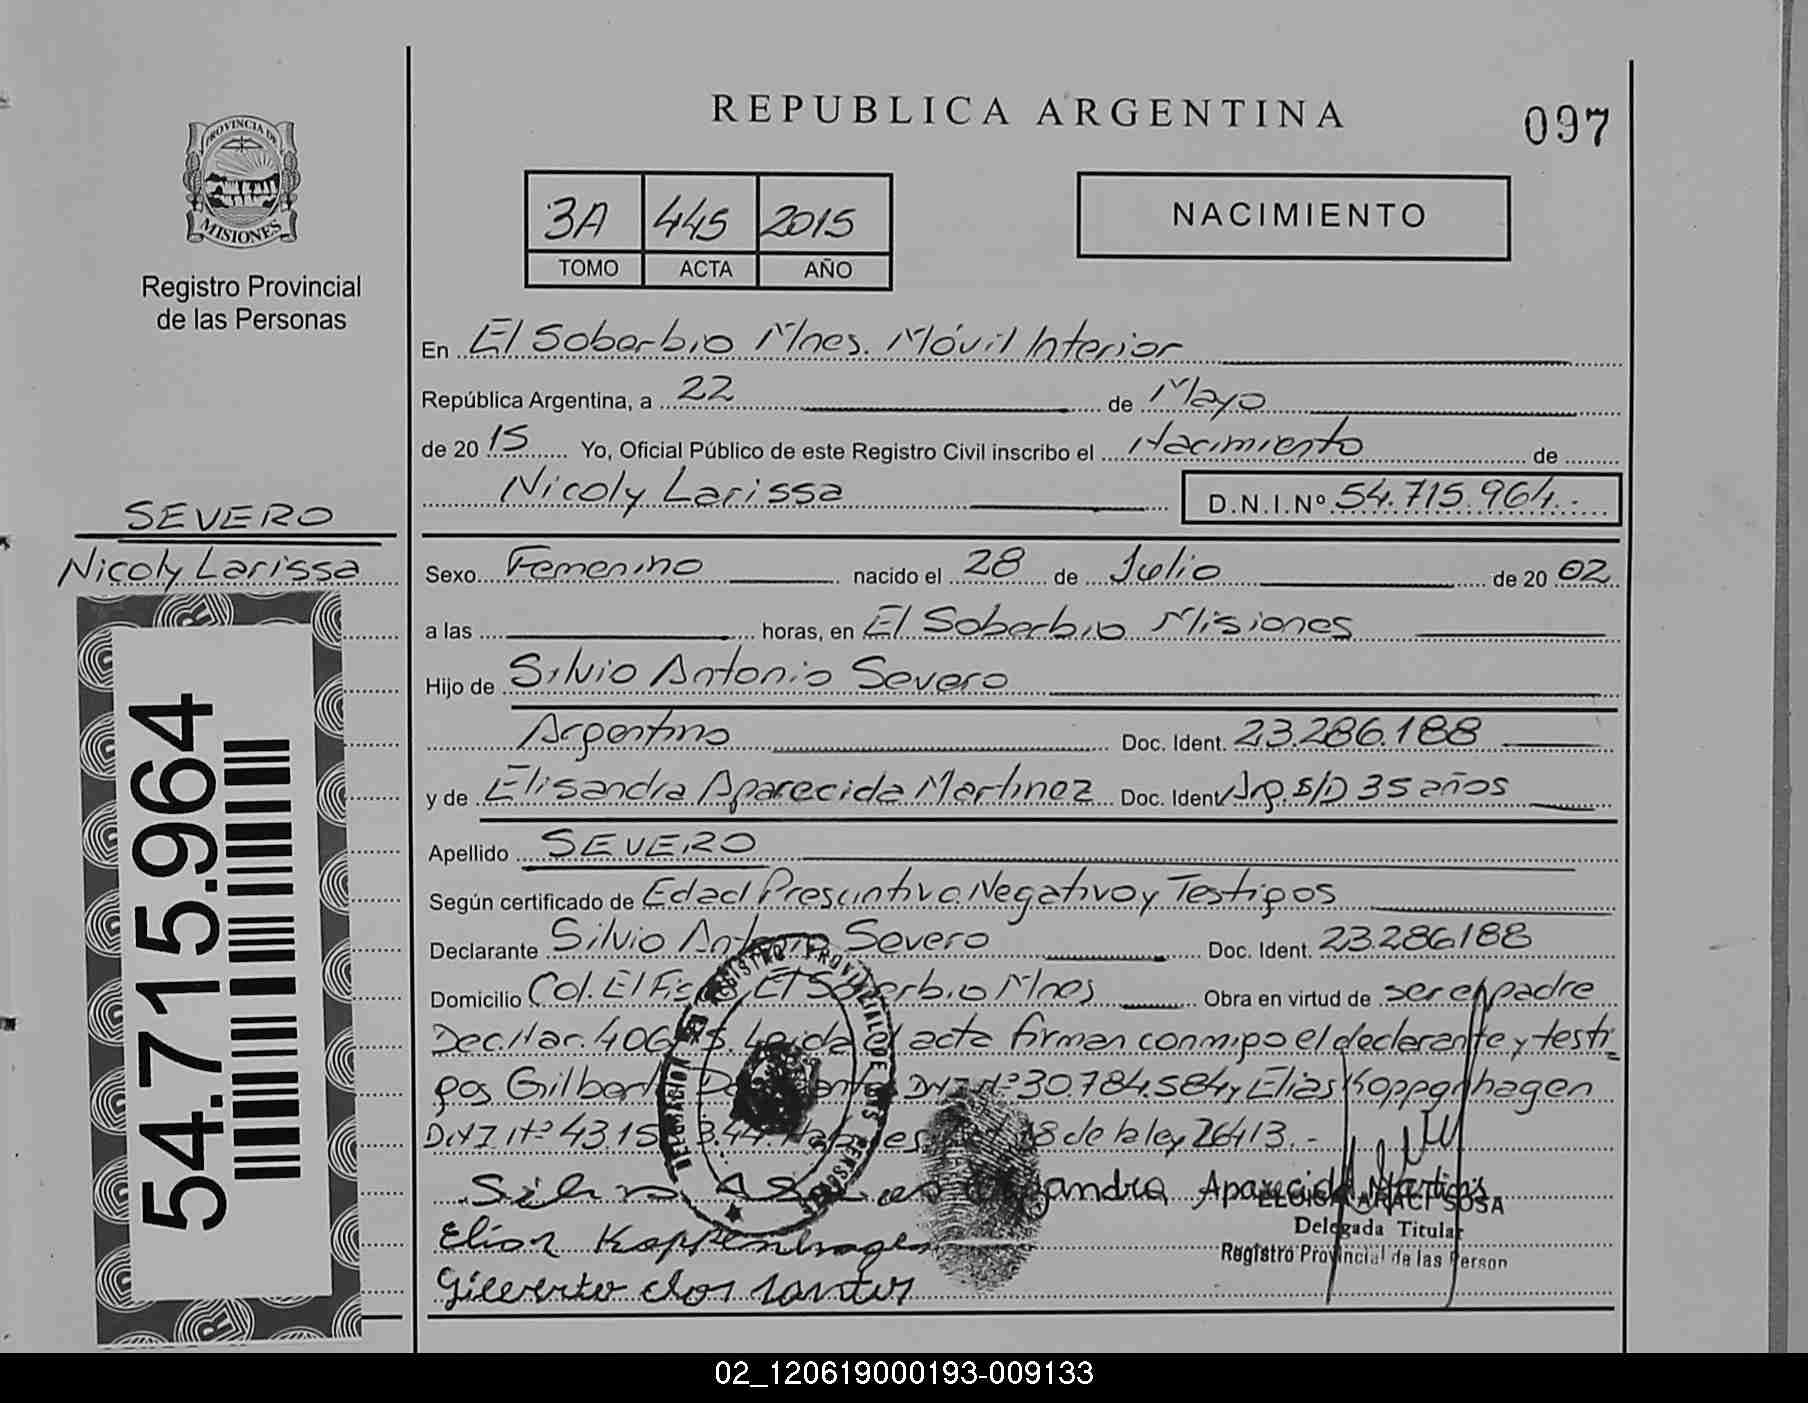 PROVINCIA DE
MISIONES
Registro Provincial
de las Personas
SEVERO
Nicoly Larissa
54.715.964
REPUBLICA ARGENTINA
097
3A 445 2015
TOMO ACTA AÑO
NACIMIENTO
En El Soberbio Mnes. Móvil Interior
República Argentina, a 22 de Mayo
de 20 15 Yo, Oficial Público de este Registro Civil inscribo el Nacimiento de
Nicoly Larissa D.N.I.Nº 54.715.964.-
Sexo Femenino nacido el 28 de Julio de 20 02
a las horas, en El Soberbio Misiones
Hijo de Silvio Antonio Severo
Argentino Doc. Ident. 23.286.188
y de Elisandra Aparecida Martinez Doc. Ident Arg. S/D 35 años
Apellido SEVERO
Según certificado de Edad Presuntiva. Negativo y Testigos
Declarante Silvio Antonio Severo Doc. Ident. 23.286188
Domicilio Col. El El Soberbio Mnes Obra en virtud de ser el padre
Dec. Nac. Leida el acta firman conmigo el declarante y testi_
gos DNI Nº 30.784.584 y Elias Koppenhagen
DNI Nº 43.15 de la ley 26413.-
Aparecida Martins
ELOISA ARACI SOSA
Delegada Titular
Registro Provincial de las Person
Elias Koppenhagen
Gilberto dos santos
DELEGACION REGISTRO PROVINCIAL DE LAS PERSONAS
02_120619000193-009133